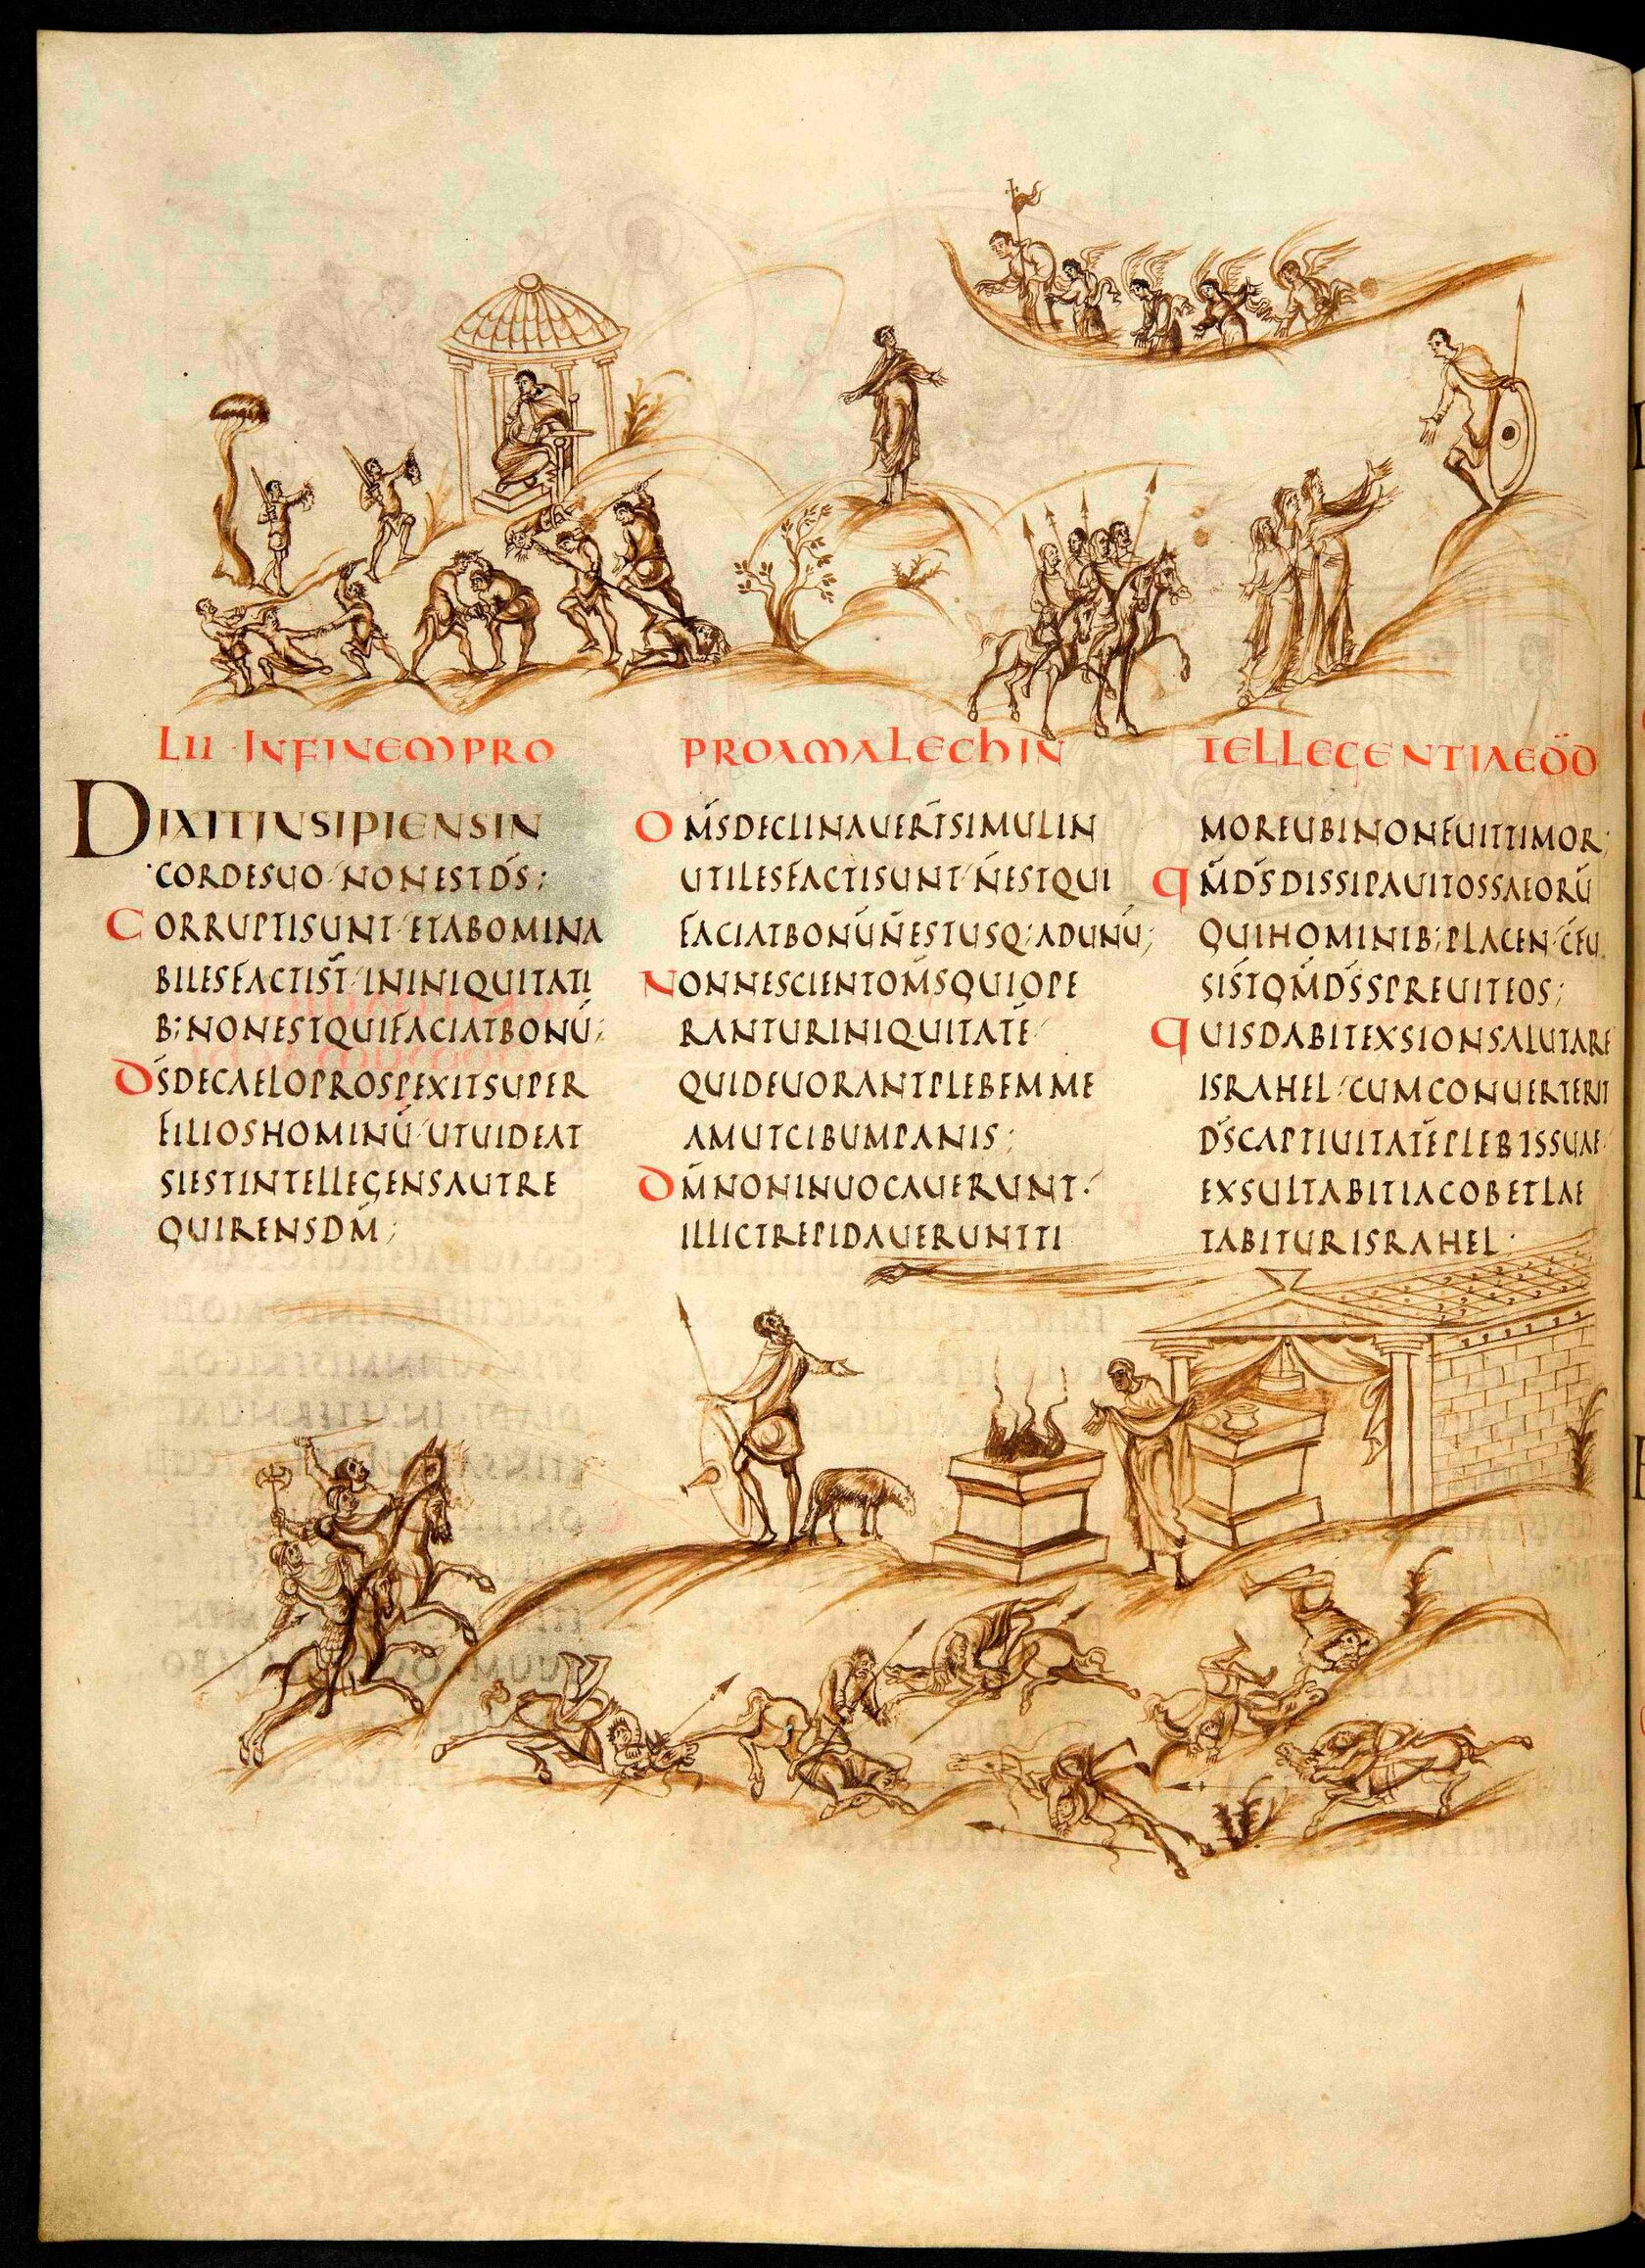 LII · INFINEMPRO
PROAMALECHIN
TELLEGENTIAEÖD
DIXITINSIPIENSIN
CORDESUO·NONESTD̄S;
CORRUPTISUNT·ETABOMINA
BILESFACTIST̄·ININIQUITATI
B;NONESTQUIFACIATBONŪ;
D̄SDECAELOPROSPEXITSUPER
FILIOSHOMINŪ·UTUIDEAT
SIESTINTELLEGENSAUTRE
QUIRENSDM̄;
OM̄SDECLINAUERT̄SIMULIN
UTILESFACTISUNT·N̄ESTQUI
FACIATBONŪN̄ESTUSQ;ADUNŪ;
NONNESCIENTOM̄SQUIOPE
RANTURINIQUITATĒ·
QUIDEUORANTPLEBEMME
AMUTCIBUMPANIS;
DM̄NONINUOCAUERUNT·
ILLICTREPIDAUERUNTTI
MOREUBINONFUITTIMOR;
QM̄D̄SDISSIPAUITOSSAEORŪ
QUIHOMINIB;PLACEN·CFU
SIST̄QM̄D̄SSPREUITEOS;
QUISDABITEXSIONSALUTARE
ISRAHEL·CUMCONUERTERIT
D̄SCAPTIUITATĒPLEBISSUAE·
EXSULTABITIACOBETLAE
TABITURISRAHEL·